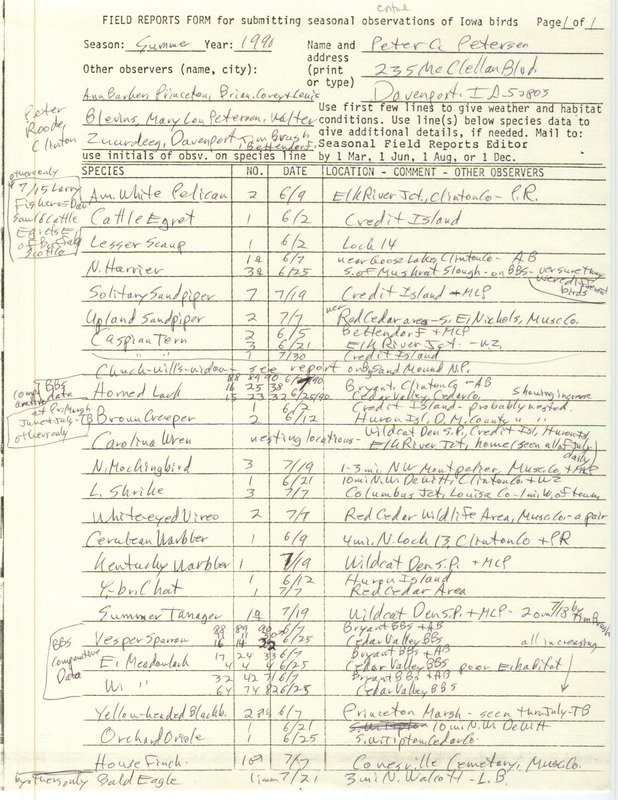 ental
FIELD REPORTS FORM for submitting seasonal observations of Iowa birds Page 1 of 1
Season: Summer Year: 1990 Name and address (print or type) Peter C. Petersen
235 McClellan Blvd.
Davenport, IA 52803
Other observers (name, city):
Ann Barker Princeton, Brian, Corey + Louis
Blevins, Mary Lou Petersen, Walter
Zuurdeeg, Davenport, Jim Brush, Bettendorf
Peter
Roode,
Clinton
Use first few lines to give weather and habitat
conditions. Use line(s) below species data to
give additional details, if needed. Mail to:
Seasonal Field Reports Editor
use initials of obsv. on species line by 1 Mar, 1 Jun, 1 Aug, or 1 Dec.
SPECIES NO. DATE LOCATION - COMMENT - OTHER OBSERVERS
others only
7/15 Larry
Fisher of Dav
saw 6 Cattle
Egrets E
Scott Co
Am. White Pelican 2 6/9 Elk River Jct, Clinton Co - P.R.
Cattle Egret 1 6/2 Credit Island
Lesser Scaup 1 6/2 Lock 14
N. Harrier 6/7 near Goose Lake, Clinton Co - AB
6/25 S. of Muskrat Slough - on BBS - very sure they were different birds
Solitary Sandpiper 7 7/19 Credit Island + MCP
Upland Sandpiper 2 7/7 near Red Cedar area - S. E. Nichols, Musc Co.
Caspian Tern 2 6/5 Bettendorf + MCP
3 6/21 Elk River Jct. - WZ
" " 1 7/30 Credit Island
Chuck-wills-widow - see report on Big Sand Mound N.P.
88 89 90
Horned Lark 16 25 38 6/7/90 Bryant, Clinton Co - AB
15 23 32 6/25/90 Cedar Valley, Cedar Co. showing increase
BBS
data
others only
Brown Creeper 1 6/2 Credit Island - probably nested.
2 6/12 Huron Isl, D.M. County " "
Carolina Wren nesting locations - Wildcat Den S.P., Credit Isl, Huron Isl,
Elk River Jct, home (seen all of July daily)
N. Mockingbird 3 7/19 1-3 mi. N.W. Montpelier, Musc Co. + MCP
1 6/21 10 mi N.W. Dewitt, Clinton Co + WZ
L. Shrike 3 7/7 Columbus Jct, Louisa Co - 1 mi W. of town
White-eyed Vireo 2 7/7 Red Cedar Wildlife Area, Musc Co - a pair
Cerulean Warbler 1 6/9 4 mi. N. Lock 13, Clinton Co + PR
Kentucky Warbler 1 7/19 Wildcat Den S.P. + MCP
1 6/12 Huron Island
Y-br. Chat 1 7/7 Red Cedar Area
Summer Tanager 7/19 Wildcat Den S.P. + MCP - 2 on 7/18 by Jim Brush
88 89 90
Vesper Sparrow 6/7 Bryant BBS + AB
16 14 22 6/25 Cedar Valley BBS all increasing
BBS
comparative
Data
E. Meadowlark 17 24 33 6/7 Bryant BBS + AB
4 4 4 6/25 Cedar Valley BBS poor E habitat
W. " 32 42 71 6/7 Bryant BBS + AB
64 74 82 6/25 Cedar Valley BBS
Yellow-headed Blackb. 6/7 Princeton Marsh - seen thru July - TB
1 6/21 10 mi N.W. Dewitt
Orchard Oriole 1 6/25 S.W. Tipton Cedar Co.
House Finch 7/7 Conesville Cemetery, Musc Co.
by others only Bald Eagle 1 imm 7/21 3 mi N. Walcott - L.B.